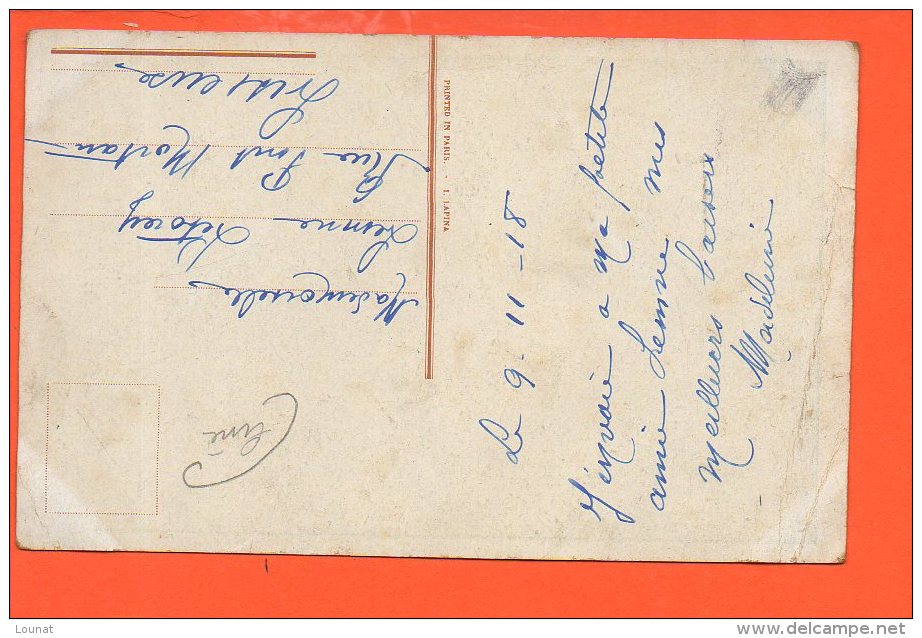 Le 9-11-18
J'envoie a ma petite
amie Lemne mes
meilleurs baisers
Madeleine
PRINTED IN PARIS. - I. LAPINA
Mademoiselle
Lemne
Rue Pont Mortain
Lisieux
Lounat
www.delcampe.net